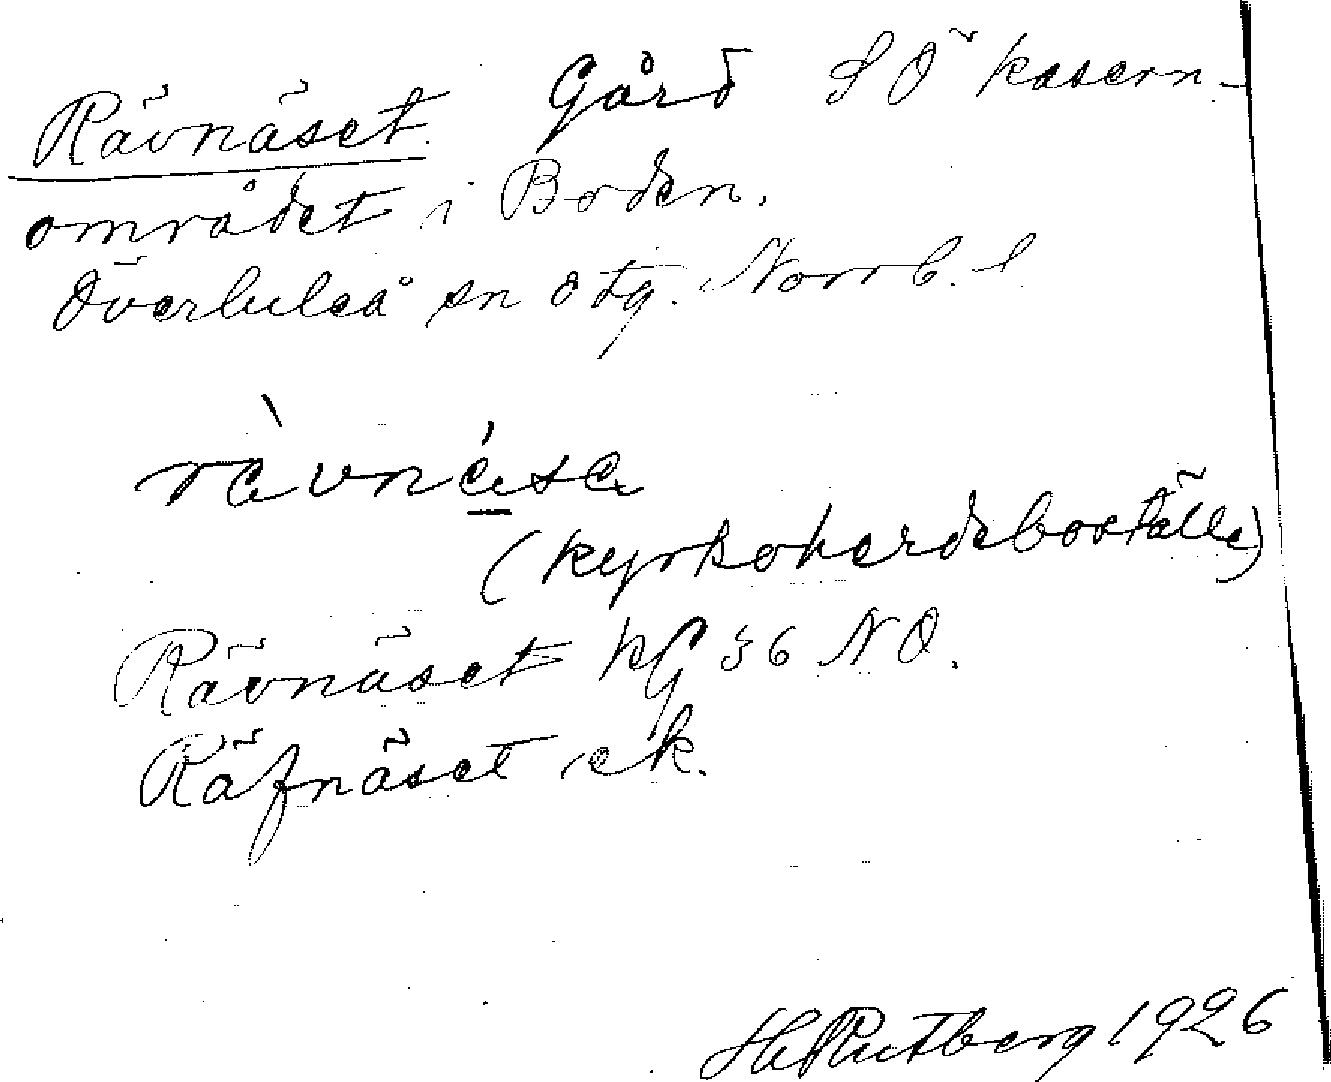 Rävnäset. Gård S Ö kasern-
området i Boden.
Överluleå sn Norrb. l
rävnäse
(kyrkoherdeboställe)
Rävnäset KG 36 NO.
Räfnäset ek.
H. Rutberg 1926